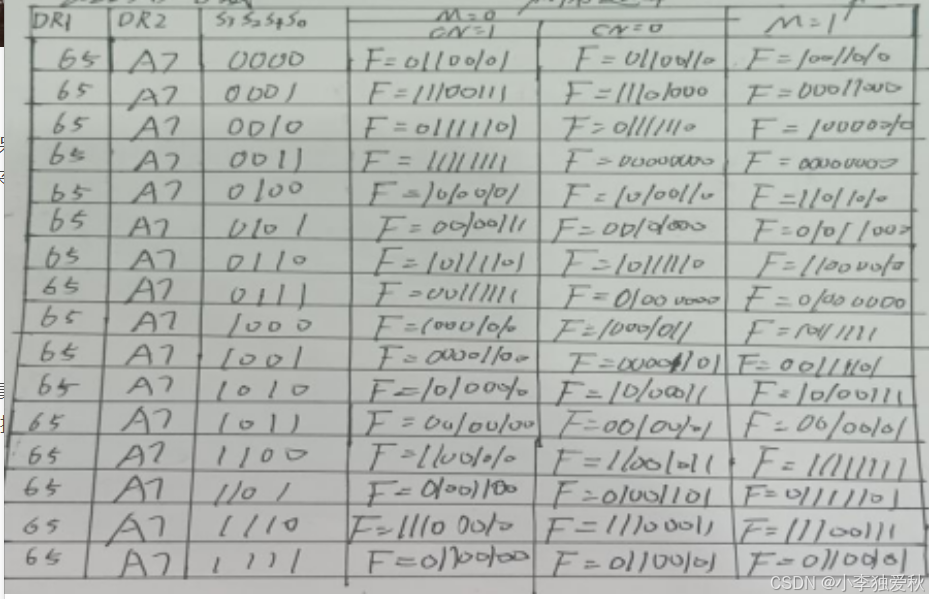 DR1 DR2 S3S2S1S0 M=0 M=1
CN=1 CN=0
65 A7 0000 F=01100101 F=01100110 F=10011010
65 A7 0001 F=11100111 F=11101000 F=00011000
65 A7 0010 F=01111101 F=01111110 F=10000010
65 A7 0011 F=11111111 F=00000000 F=00000000
65 A7 0100 F=10100101 F=10100110 F=11011010
65 A7 0101 F=00100111 F=00101000 F=01011000
65 A7 0110 F=10111101 F=10111110 F=11000010
65 A7 0111 F=00111111 F=01000000 F=01000000
65 A7 1000 F=10001010 F=10001011 F=10111111
65 A7 1001 F=00001100 F=00001101 F=00111101
65 A7 1010 F=10100010 F=10100011 F=10100111
65 A7 1011 F=00100100 F=00100101 F=00100101
65 A7 1100 F=11001010 F=11001011 F=11111111
65 A7 1101 F=01001100 F=01001101 F=01111101
65 A7 1110 F=11100010 F=11100011 F=11100111
65 A7 1111 F=01100100 F=01100101 F=01100101
CSDN @小李独爱秋